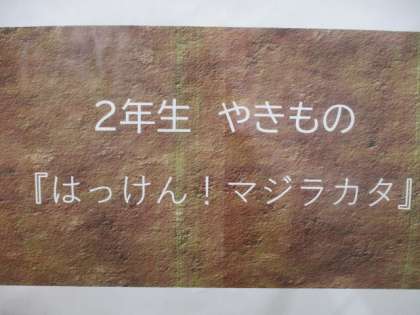 2年生 やきもの
『はっけん！マジラカタ』